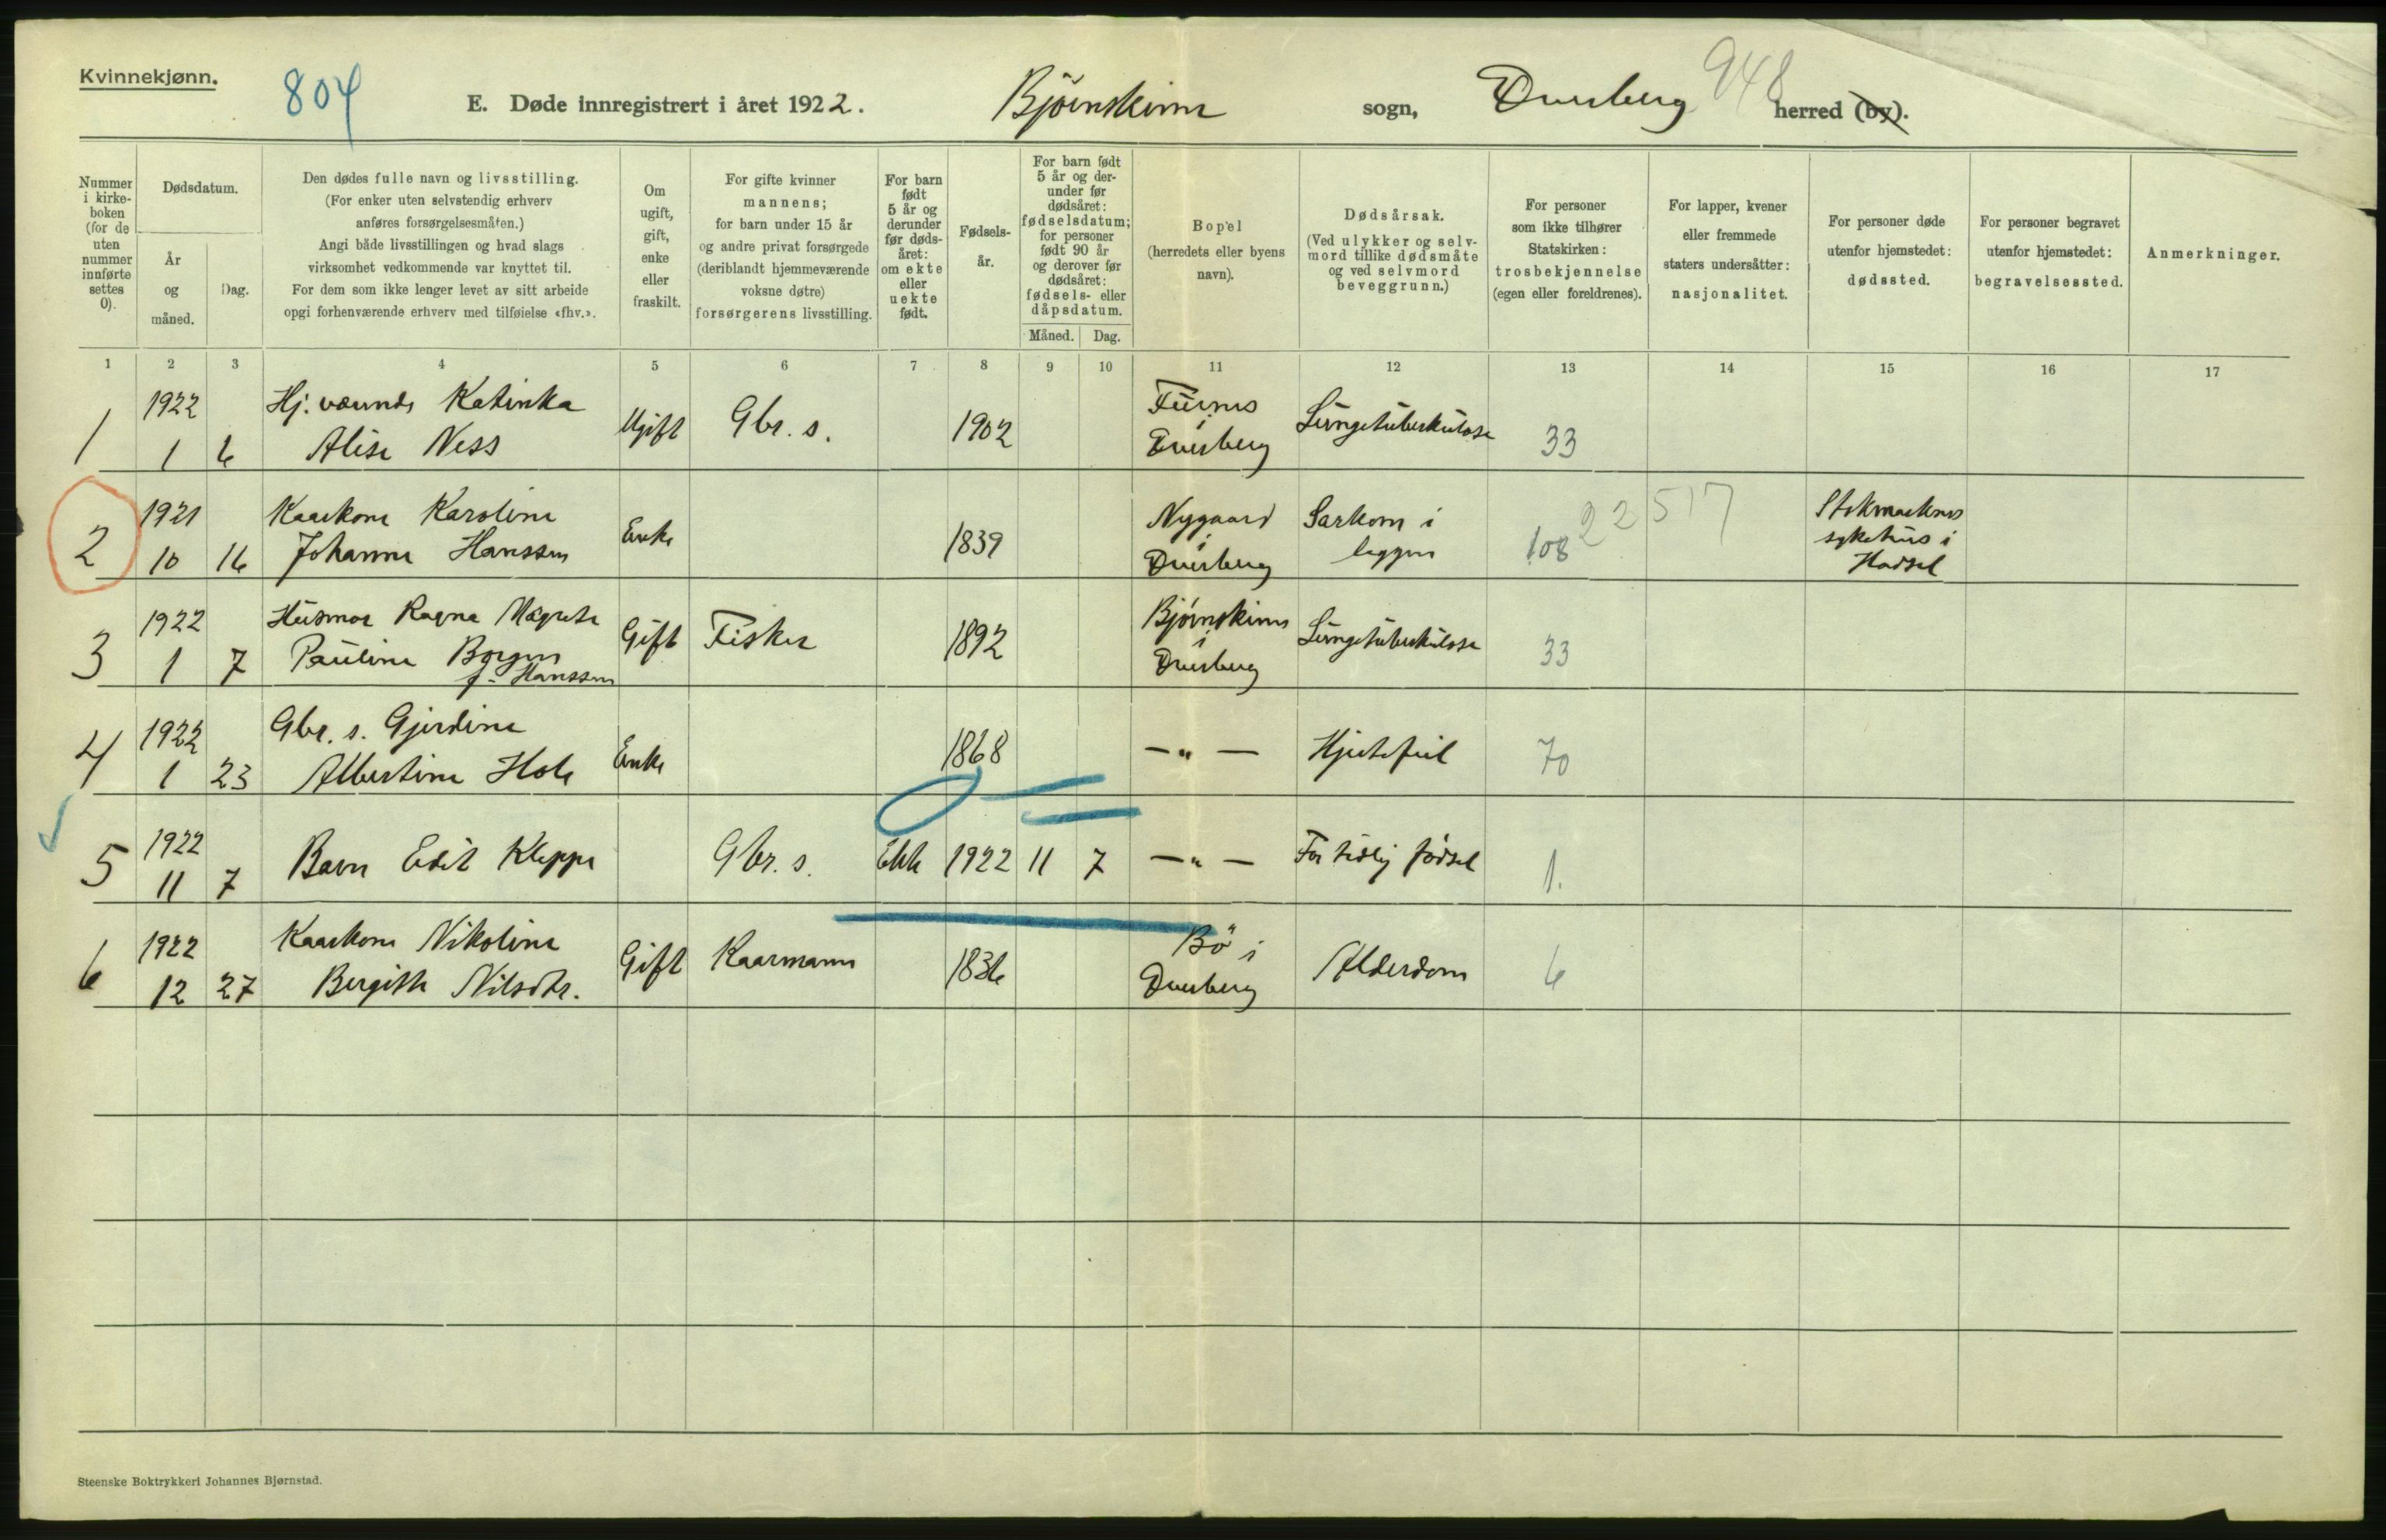 Kvinnekjønn.
804
E. Døde innregistrert i året 1922.
Bjørnskinn sogn, Dverberg herred (by).
948
Nummer i kirke-boken (for de uten nummer innførte settes 0).
Dødsdatum.
År og måned.
Dag.
Den dødes fulle navn og livsstilling.
(For enker uten selvstendig erhverv
anføres forsørgelsesmåten.)
Angi både livsstillingen og hvad slags
virksomhet vedkommende var knyttet til.
For dem som ikke lenger levet av sitt arbeide
opgi forhenværende erhverv med tilføielse «fhv.».
Om ugift, gift, enke eller fraskilt.
For gifte kvinner
mannens;
for barn under 15 år
og andre privat forsørgede
(deriblandt hjemmeværende
voksne døtre)
forsørgerens livsstilling.
For barn født 5 år og derunder før døds-året: om ekte eller uekte født.
Fødsels-år.
For barn født
5 år og der-
under før
dødsåret:
fødselsdatum;
for personer
født 90 år
og derover før
dødsåret:
fødsels- eller
dåpsdatum.
Måned. Dag.
Bopel
(herredets eller byens
navn).
Dødsårsak.
(Ved ulykker og selv-
mord tillike dødsmåte
og ved selvmord
beveggrunn.)
For personer
som ikke tilhører
Statskirken:
trosbekjennelse
(egen eller foreldrenes).
For lapper, kvener
eller fremmede
staters undersåtter:
nasjonalitet.
For personer døde
utenfor hjemstedet:
dødssted.
For personer begravet
utenfor hjemstedet:
begravelsessted.
Anmerkninger.
1 2 3 4 5 6 7 8 9 10 11 12 13 14 15 16 17
1 1922 1 6 Hj. værende Katinka
Alise Ness Ugift Gbr. s. 1902 i
Dverberg Lungetuberkulose 33
2 1921 10 16 Kaarkone Karoline
Johanne Hanssen Enke 1839 Nygaard
i
Dverberg Sarkom i
leggen 108 22517 Stokmarknes
sykehus i
Hadsel
3 1922 1 7 Husmor Ragna Magrete
Pauline Borgen
f. Hanssen Gift Fisker 1892 Bjørnskinn
i
Dverberg Lungetuberkulose 33
4 1922 1 23 Gbr. s. Gjerdine
Albertine Hole Enke 1868 — „ — Hjertefeil 70
5 1922 11 7 Barn Edit Kleppe Gbr. s. Ekte 1922 11 7 — „ — For tidlig fødsel 1.
6 1922 12 27 Kaarkone Nikoline
Bergitte Nilsdtr. Gift Kaarmann 1836 Bö i
Dverberg Alderdom 6
Steenske Boktrykkeri Johannes Bjørnstad.